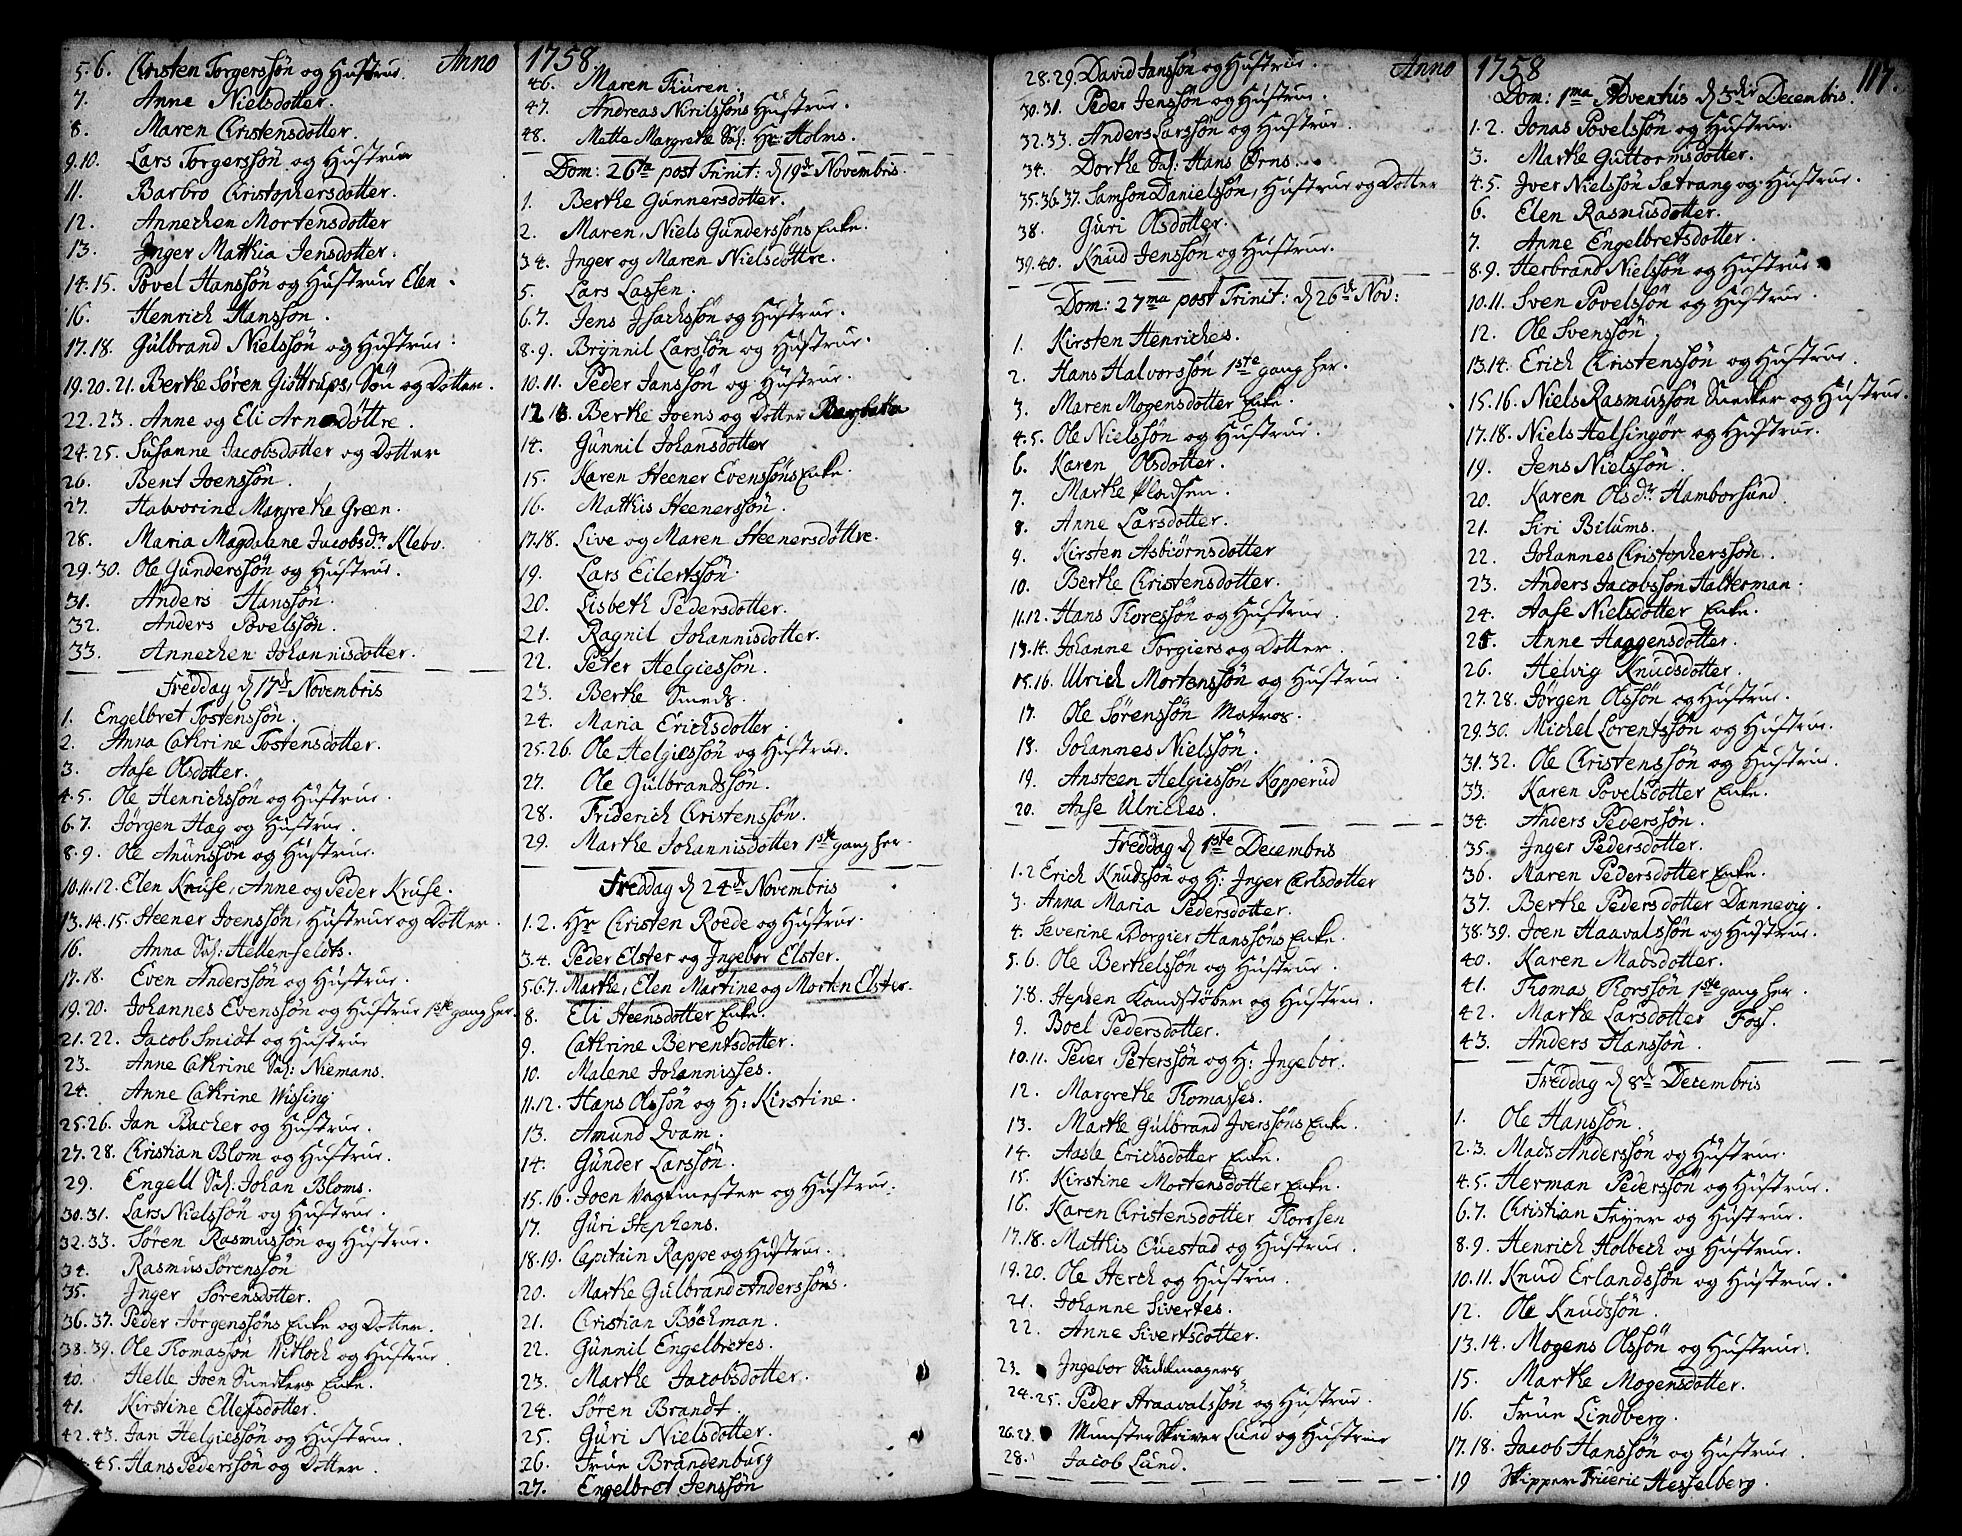 Anno 1758.
5.6. Christen Torgerssøn og Hustrue.
7. Anne Nielsdotter.
8. Maren Christensdotter.
9.10. Lars Torgerssøn og Hustrue
11. Barbro Christophersdotter.
12. Annechen Mortensdotter
13. Inger Mathia Jensdotter.
14.15. Povel Hanssøn og Hustrue Elen.
16. Henrich Hanssøn.
17.18. Gulbrand Nielssøn og Hustrue:
19.20.21. Berthe Søren Giøttrups, Søn og Dotter.
22.23. Anne og Eli Arnedøttre.
24.25. Susanne Jacobsdotter og Dotter
26. Bent Joenssøn.
27. Halvorine Margrethe Green.
28. Maria Magdalene Jacobsdr Klebo.
29.30. Ole Gunderssøn og Hustrue.
31. Anders Hanssøn.
32. Anders Povelssøn.
33. Annechen Johannisdotter.
Freddag d 17de Novembris
1. Engelbret Tostenssøn.
2. Anna Cathrine Tostensdotter.
3. Aase Olsdotter.
4.5. Ole Henrichssøn og Hustrue.
6.7. Jørgen Hæg og Hustrue.
8.9. Ole Anunssøn og Hustrue.
10.11.12. Elen Kruse, Anne og Peder Kruse.
13.14.15. Steener Joenssøn, Hustrue og Dotter.
16. Anna Sal: Hellenfeldts.
17.18. Even Anderssøn og Hustrue.
19.20. Johannes Evenssøn og Hustrue 1ste gang her.
21.22. Jacob Smidt og Hustrue
23. Anne Cathrine Sal: Niemans.
24. Anne Cathrine Wissing
25.26. Jan Bacher og Hustrue.
27.28. Christian Blom og Hustrue.
29. Engell Sal: Johan Bloms.
30.31. Lars Nielssøn og Hustrue.
32.33. Søren Rasmussøn og Hustrue.
34. Rasmus Sørenssøn
35. Inger Sørensdotter.
36.37. Peder Jørgenssøns Enke og Dotter.
38.39. Ole Thomassøn Witloch og Hustrue.
40. Helle Joen Snedkers Enke.
41. Kirstine Ellefsdotter.
42.43. Jan Helgiessøn og Hustrue.
45. Hans Pederssøn og Dotter.
46. Maren Turen.
47. Andreas Nirilssøns Hustrue.
48. Mette Margrethe Sal: Hr Holms.
Dom: 26ta post Trinit: d 19de Novembris.
1. Berthe Gunnersdotter.
2. Maren, Niels Gunderssøns Enke.
3.4. Inger og Maren Nielsdøttre.
5. Lars Lassen.
6.7. Jens Isachssøn og Hustrue.
8.9. Brynnil Larssøn og Hustrue.
10.11. Peder Janssøn og Hustrue.
12.13. Berthe Joens og Dotter Barbara
14. Gunnil Johansdotter
15. Karen Steener Evenssøns Enke.
16. Mathis Steenerssøn.
17.18. Live og Maren Steenersdøttre.
19. Lars Eilertssøn.
20. Lisbeth Pedersdotter.
21. Ragnil Johannisdotter.
22. Peter Helgiessøn.
23. Berthe Smeds.
24. Maria Erichsdotter.
25.26. Ole Helgiessøn og Hustrue.
27. Ole Gulbrandssøn.
28. Friderich Christenssøn.
29. Marthe Johannisdotter 1ste gang her.
Freddag d 24de Novembris
1.2. Hr Christen Roede og Hustrue.
3.4. Peder Elster og Ingebor Elster.
5.6.7. Marthe, Elen Martine og Morten Elster.
8. Eli Steensdotter Enke.
9. Cathrine Berentsdotter.
10. Malene Johannisses.
11.12. Hans Olssøn og H: Kirstine.
13. Amund Qvam.
14. Gunder Larssøn.
15.16. Joen Vagtmester og Hustrue.
17. Guri Stephens.
18.19. Capitain Rappe og Hustrue.
20. Marthe Gulbrand Anderssøns.
21. Christian Bøckman.
22. Gunnil Engelbretes.
23. Marthe Jacobsdotter.
24. Søren Brandt.
25. Guri Nielsdotter.
26. Frue Brandenburg
27. Engelbret Jenssøn
Anno 1758
117.
28.29. David Janssøn og Hustrue.
30.31. Peder Jenssøn og Hustrue.
32.33. Anders Larssøn og Hustrue.
34. Dorthe Sal: Hans Ørns.
35.36.37. Samson Danielssøn, Hustrue og Dotter
38. Guri Olsdotter.
39.40. Knud Jenssøn og Hustrue.
Dom: 27ma post Trinit: d 26de Nov:
1. Kirsten Henriches.
2. Hans Halvorssøn 1ste gang her.
3. Maren Mogensdotter Enke.
4.5. Ole Nielssøn og Hustrue.
6. Karen Olsdotter.
7. Marthe Pladsen.
8. Anne Larsdotter.
9. Kirsten Asbiørnsdotter
10. Berthe Christensdotter.
11.12. Hans Thoressøn og Hustrue.
13.14. Johanne Torgiers og Dotter.
15.16. Ulrich Mortenssøn og Hustrue.
17. Ole Sørenssøn Matros.
18. Johannes Nielssøn.
19. Ansteen Helgiessøn Kopperud
20. Anse Ulriches.
Freddag d 1ste Decembris
1.2 Erich Knudssøn og H: Inger Carlsdotter
3. Anna Maria Pedersdotter.
4. Severine Borgier Hanssøns Enke.
5.6. Ole Berthelssøn og Hustrue.
7.8. Stephen Kandstøber og Hustrue.
9. Boel Pedersdotter.
10.11. Peder Peterssøn og H: Ingebor.
12. Margrethe Thomasses.
13. Marthe Gulbrand Iverssøns Enke.
14. Aasle Erichsdotter Enke.
15. Kirstine Mortensdotter Enke.
16. Karen Christensdotter Thorssen
17.18. Matthis Questad og Hustrue.
19.20. Ole Sterch og Hustrue.
21. Johanne Sivertes.
22. Anne Sivertsdotter.
23. Ingebor Sadelmagers
24.25. Peder Haavalssøn og Hustrue.
26.27. Munsterskriver Lund og Hustrue
28. Jacob Lund.
Dom: 1ma Adventus d 3die Decembris.
1.2. Jonas Povelssøn og Hustrue.
3. Marthe Guttormsdotter.
4.5. Iver Nielssøn Sætrang og Hustrue.
6. Elen Rasmusdotter.
7. Anne Engelbretsdotter.
8.9. Herbrand Nielssøn og Hustrue.
10.11. Sven Povelssøn og Hustrue.
12. Ole Svenssøn.
13.14. Erich Christenssøn og Hustrue.
15.16. Niels Rasmussøn Snedker og Hustrue.
17.18. Niels Helsingør og Hustrue.
19. Jens Nielssøn.
20. Karen Olsdr Hamborsund.
21. Siri Bilums.
22. Johannes Christopherssøn.
23. Anders Jacobssøn Halterman.
24. Aase Nielsdotter Enke.
25. Anne Haagensdotter.
26. Helvig Knudsdotter.
27.28. Jørgen Olssøn og Hustrue.
29.30. Michel Lorentssøn og Hustrue.
31.32. Ole Christenssøn og Hustrue.
33. Karen Povelsdotter Enke.
34. Anders Pederssøn.
35. Inger Pedersdotter.
36. Maren Pedersdotter Enke.
37. Berthe Pedersdotter Dannevig.
38.39. Joen Haavalssøn og Hustrue.
40. Karen Madsdotter.
41. Thomas Thorssøn 1ste gang her.
42. Marthe Larsdotter Foss.
43. Anders Hanssøn.
Freddag d 8de Decembris
1. Ole Hanssøn.
2.3. Mads Anderssøn og Hustrue.
4.5. Herman Pederssøn og Hustrue.
6.7. Christian Feyer og Hustrue.
8.9. Henrich Holbech og Hustrue.
10.11. Knud Erlandssøn og Hustrue.
12. Ole Knudssøn.
13.14. Mogens Olssøn og Hustrue.
15. Marthe Mogensdotter.
16. Frue Lindberg.
17.18. Jacob Hanssøn og Hustrue.
19 Skipper Frideric Hesselberg.